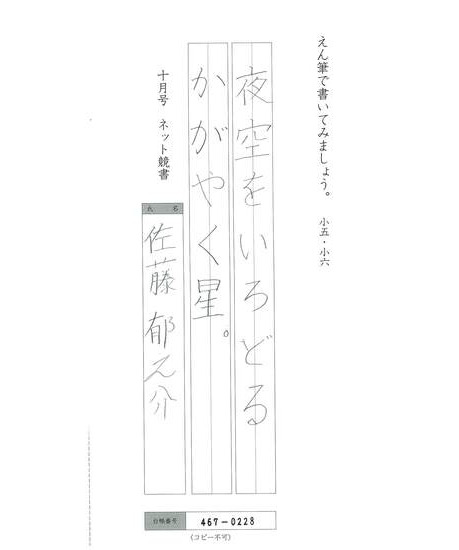 えん筆で書いてみましょう。　小五・小六
夜空をいろどる
かがやく星。
十月号　ネット競書
氏　名
佐藤郁之介
台帳番号
467-0228
(コピー不可)